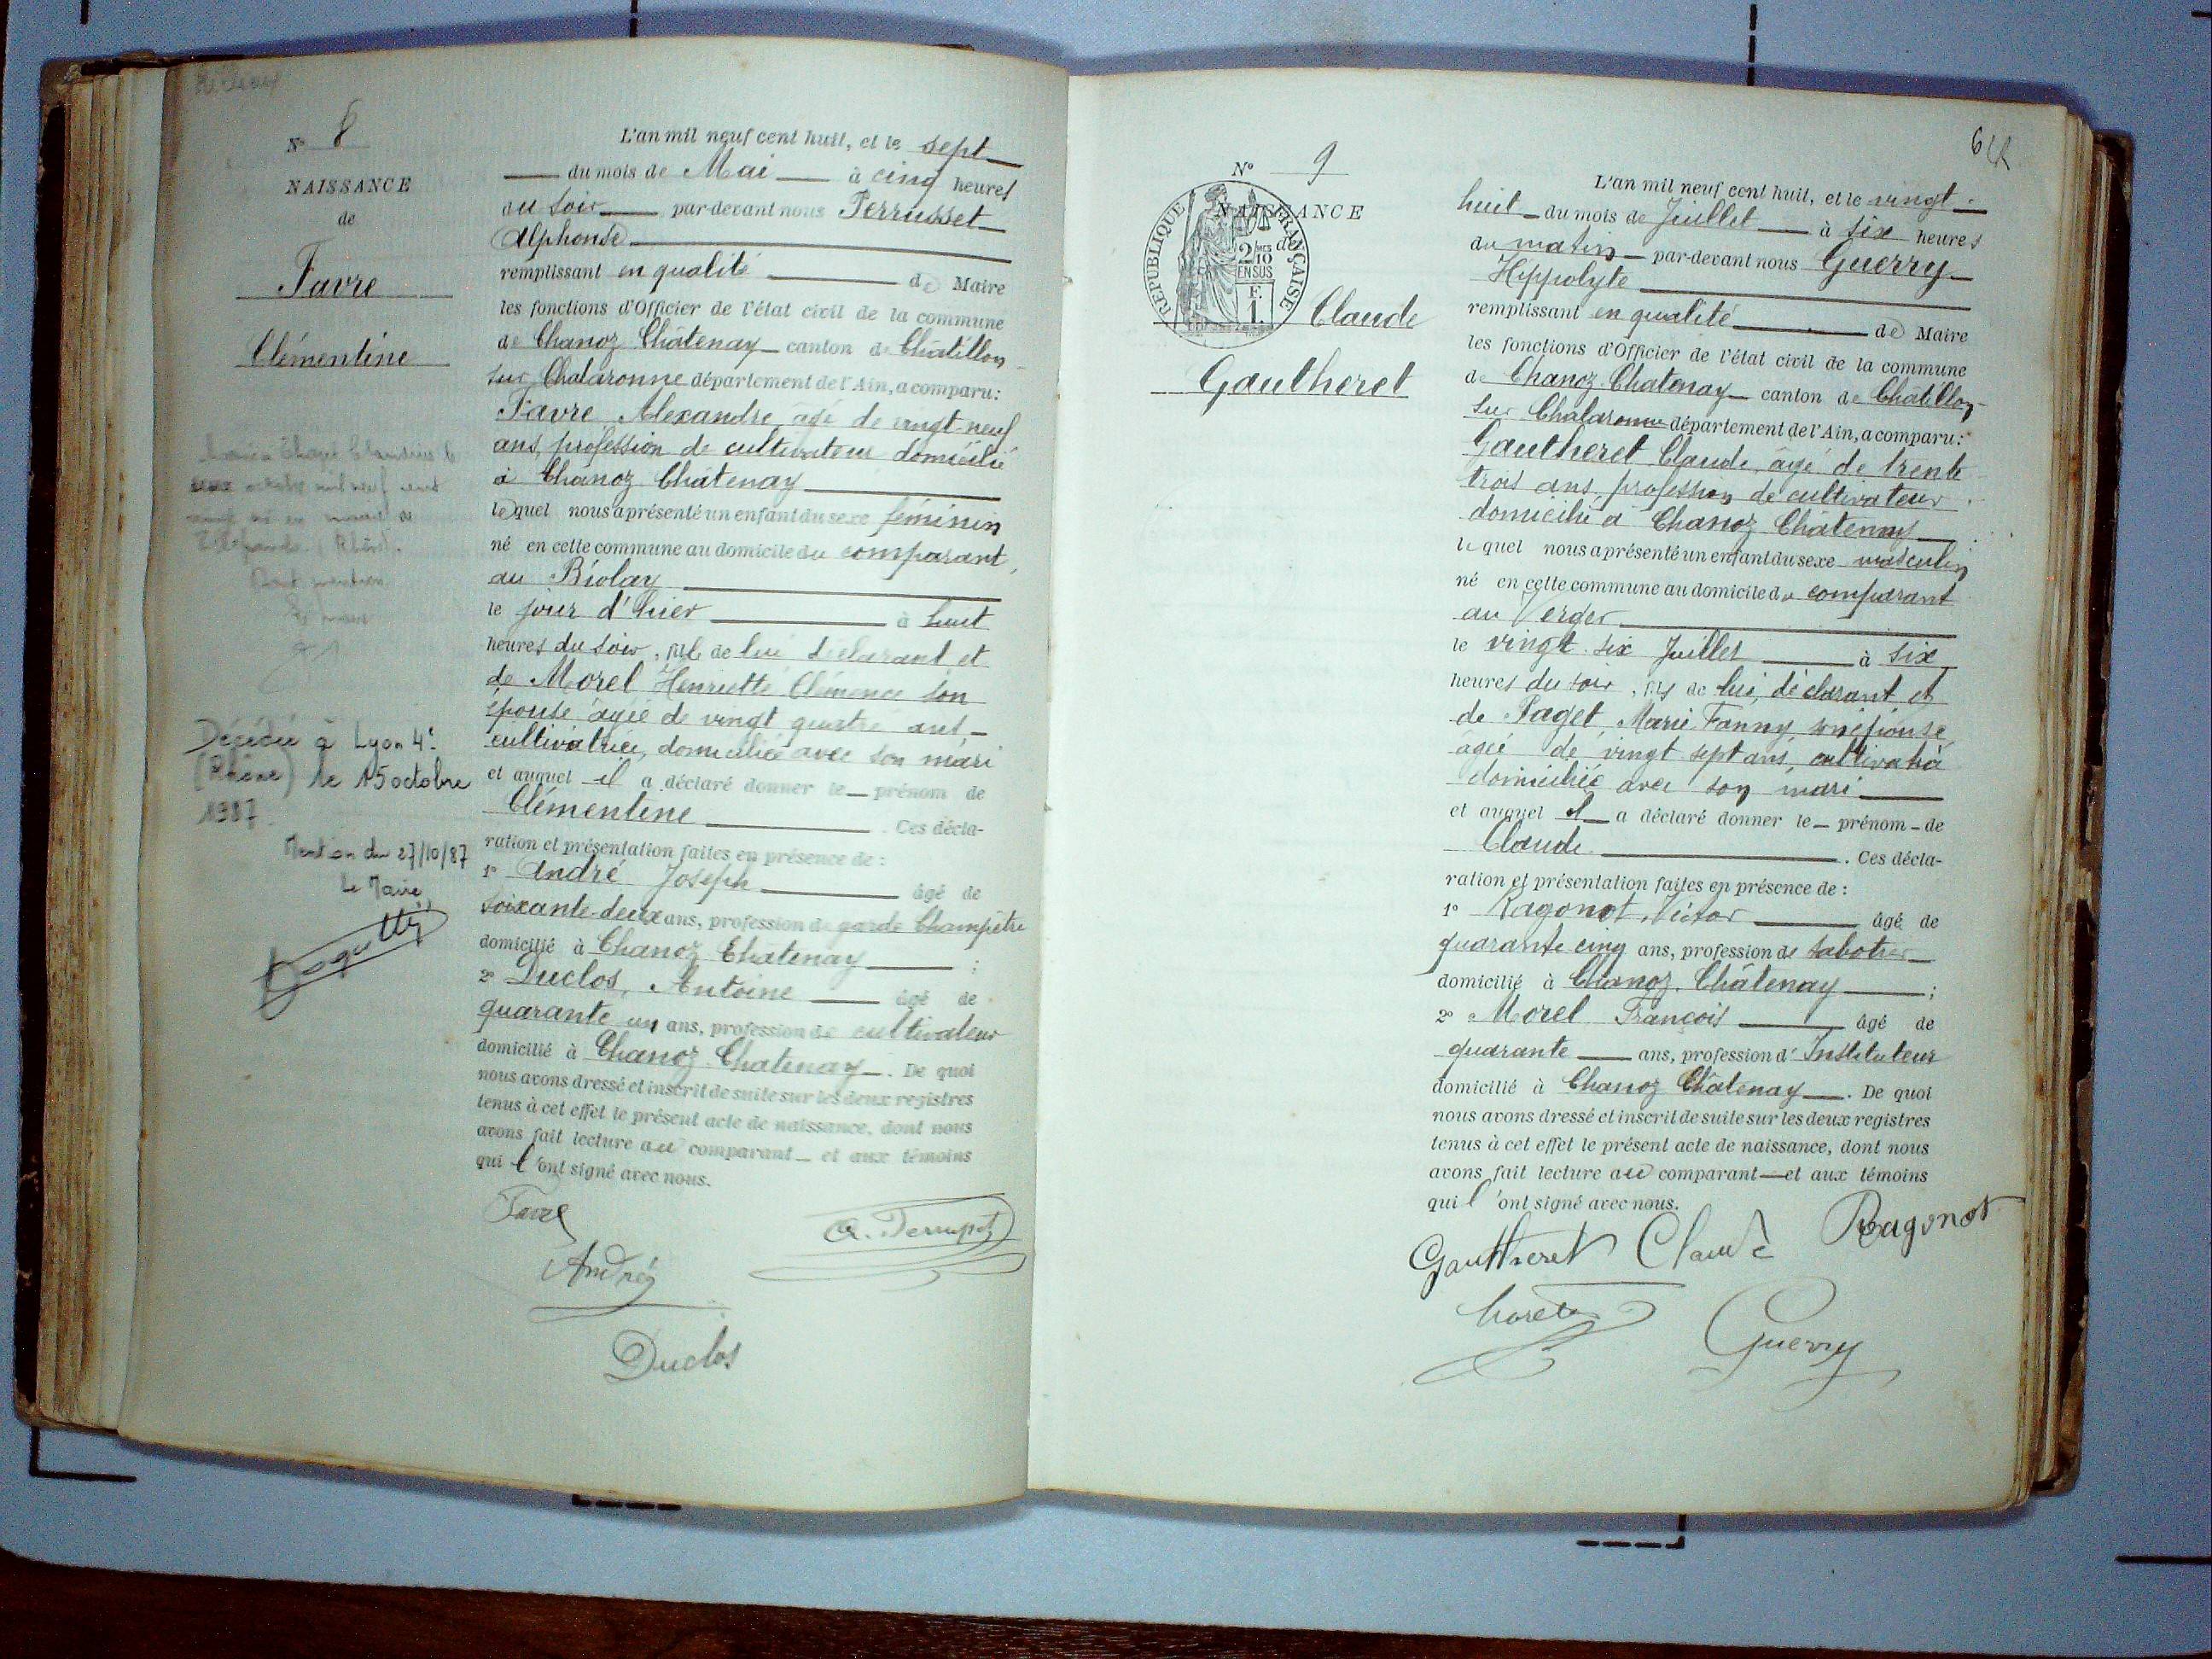 N° 8
NAISSANCE
de
Favre
Clémentine
Décédée à Lyon 4e
(Rhône) le 15 octobre
1987
Mention du 27/10/87
Le Maire,
L'an mil neuf cent huit, et le sept
du mois de Mai à cinq heures
du soir par-devant nous Perrusset
Alphonse
remplissant en qualité de Maire
les fonctions d'Officier de l'état civil de la commune
de Chanoz Châtenay canton de Châtillon
sur Chalaronne département de l'Ain, a comparu:
Favre Alexandre âgé de vingt neuf
ans, profession de cultivateur domicilié
à Chanoz Châtenay
lequel nous a présenté un enfant du sexe féminin
né en cette commune au domicile du comparant,
au Biolay
le jour d'hier à huit
heures du soir, fille de lui déclarant et
de Morel Henriette Clémence son
épouse âgée de vingt quatre ans
cultivatrice, domiciliée avec son mari
et auquel il a déclaré donner le prénom de
Clémentine . Ces décla-
ration et présentation faites en présence de :
1° André Joseph âgé de
soixante-deux ans, profession de garde Champêtre
domicilié à Chanoz Châtenay ;
2° Duclos, Antoine âgé de
quarante un ans, profession de cultivateur
domicilié à Chanoz Chatenay . De quoi
nous avons dressé et inscrit de suite sur les deux registres
tenus à cet effet le présent acte de naissance, dont nous
avons fait lecture au comparant et aux témoins
qui l'ont signé avec nous.
Favre
André
Duclos
64
N° 9
NAISSANCE
de
RÉPUBLIQUE FRANÇAISE
2/10
EN SUS
F.
1
Claude
Gautheret
L'an mil neuf cent huit, et le vingt
huit du mois de Juillet à six heures
du matin par-devant nous Guerry
Hippolyte
remplissant en qualité de Maire
les fonctions d'Officier de l'état civil de la commune
de Chanoz Chatenay canton de Châtillon
sur Chalaronne département de l'Ain, a comparu:
Gautheret Claude âgé de trente
trois ans, profession de cultivateur
domicilié à Chanoz Châtenay
lequel nous a présenté un enfant du sexe masculin
né en cette commune au domicile du comparant
au Verger
le vingt six Juillet à six
heures du soir, fils de lui, déclarant et
de Paget Marie Fanny son épouse
âgée de vingt sept ans,
domiciliée avec son mari
et auquel il a déclaré donner le prénom de
Claude . Ces décla-
ration et présentation faites en présence de :
1° Ragonot, Victor âgé de
quarante cinq ans, profession de sabotier
domicilié à Chanoz. Châtenay ;
2° Morel François âgé de
quarante ans, profession d'Instituteur
domicilié à Chanoz Châtenay . De quoi
nous avons dressé et inscrit de suite sur les deux registres
tenus à cet effet le présent acte de naissance, dont nous
avons fait lecture au comparant et aux témoins
qui l'ont signé avec nous.
Gautheret Claude Ragonot
Morel Guerry